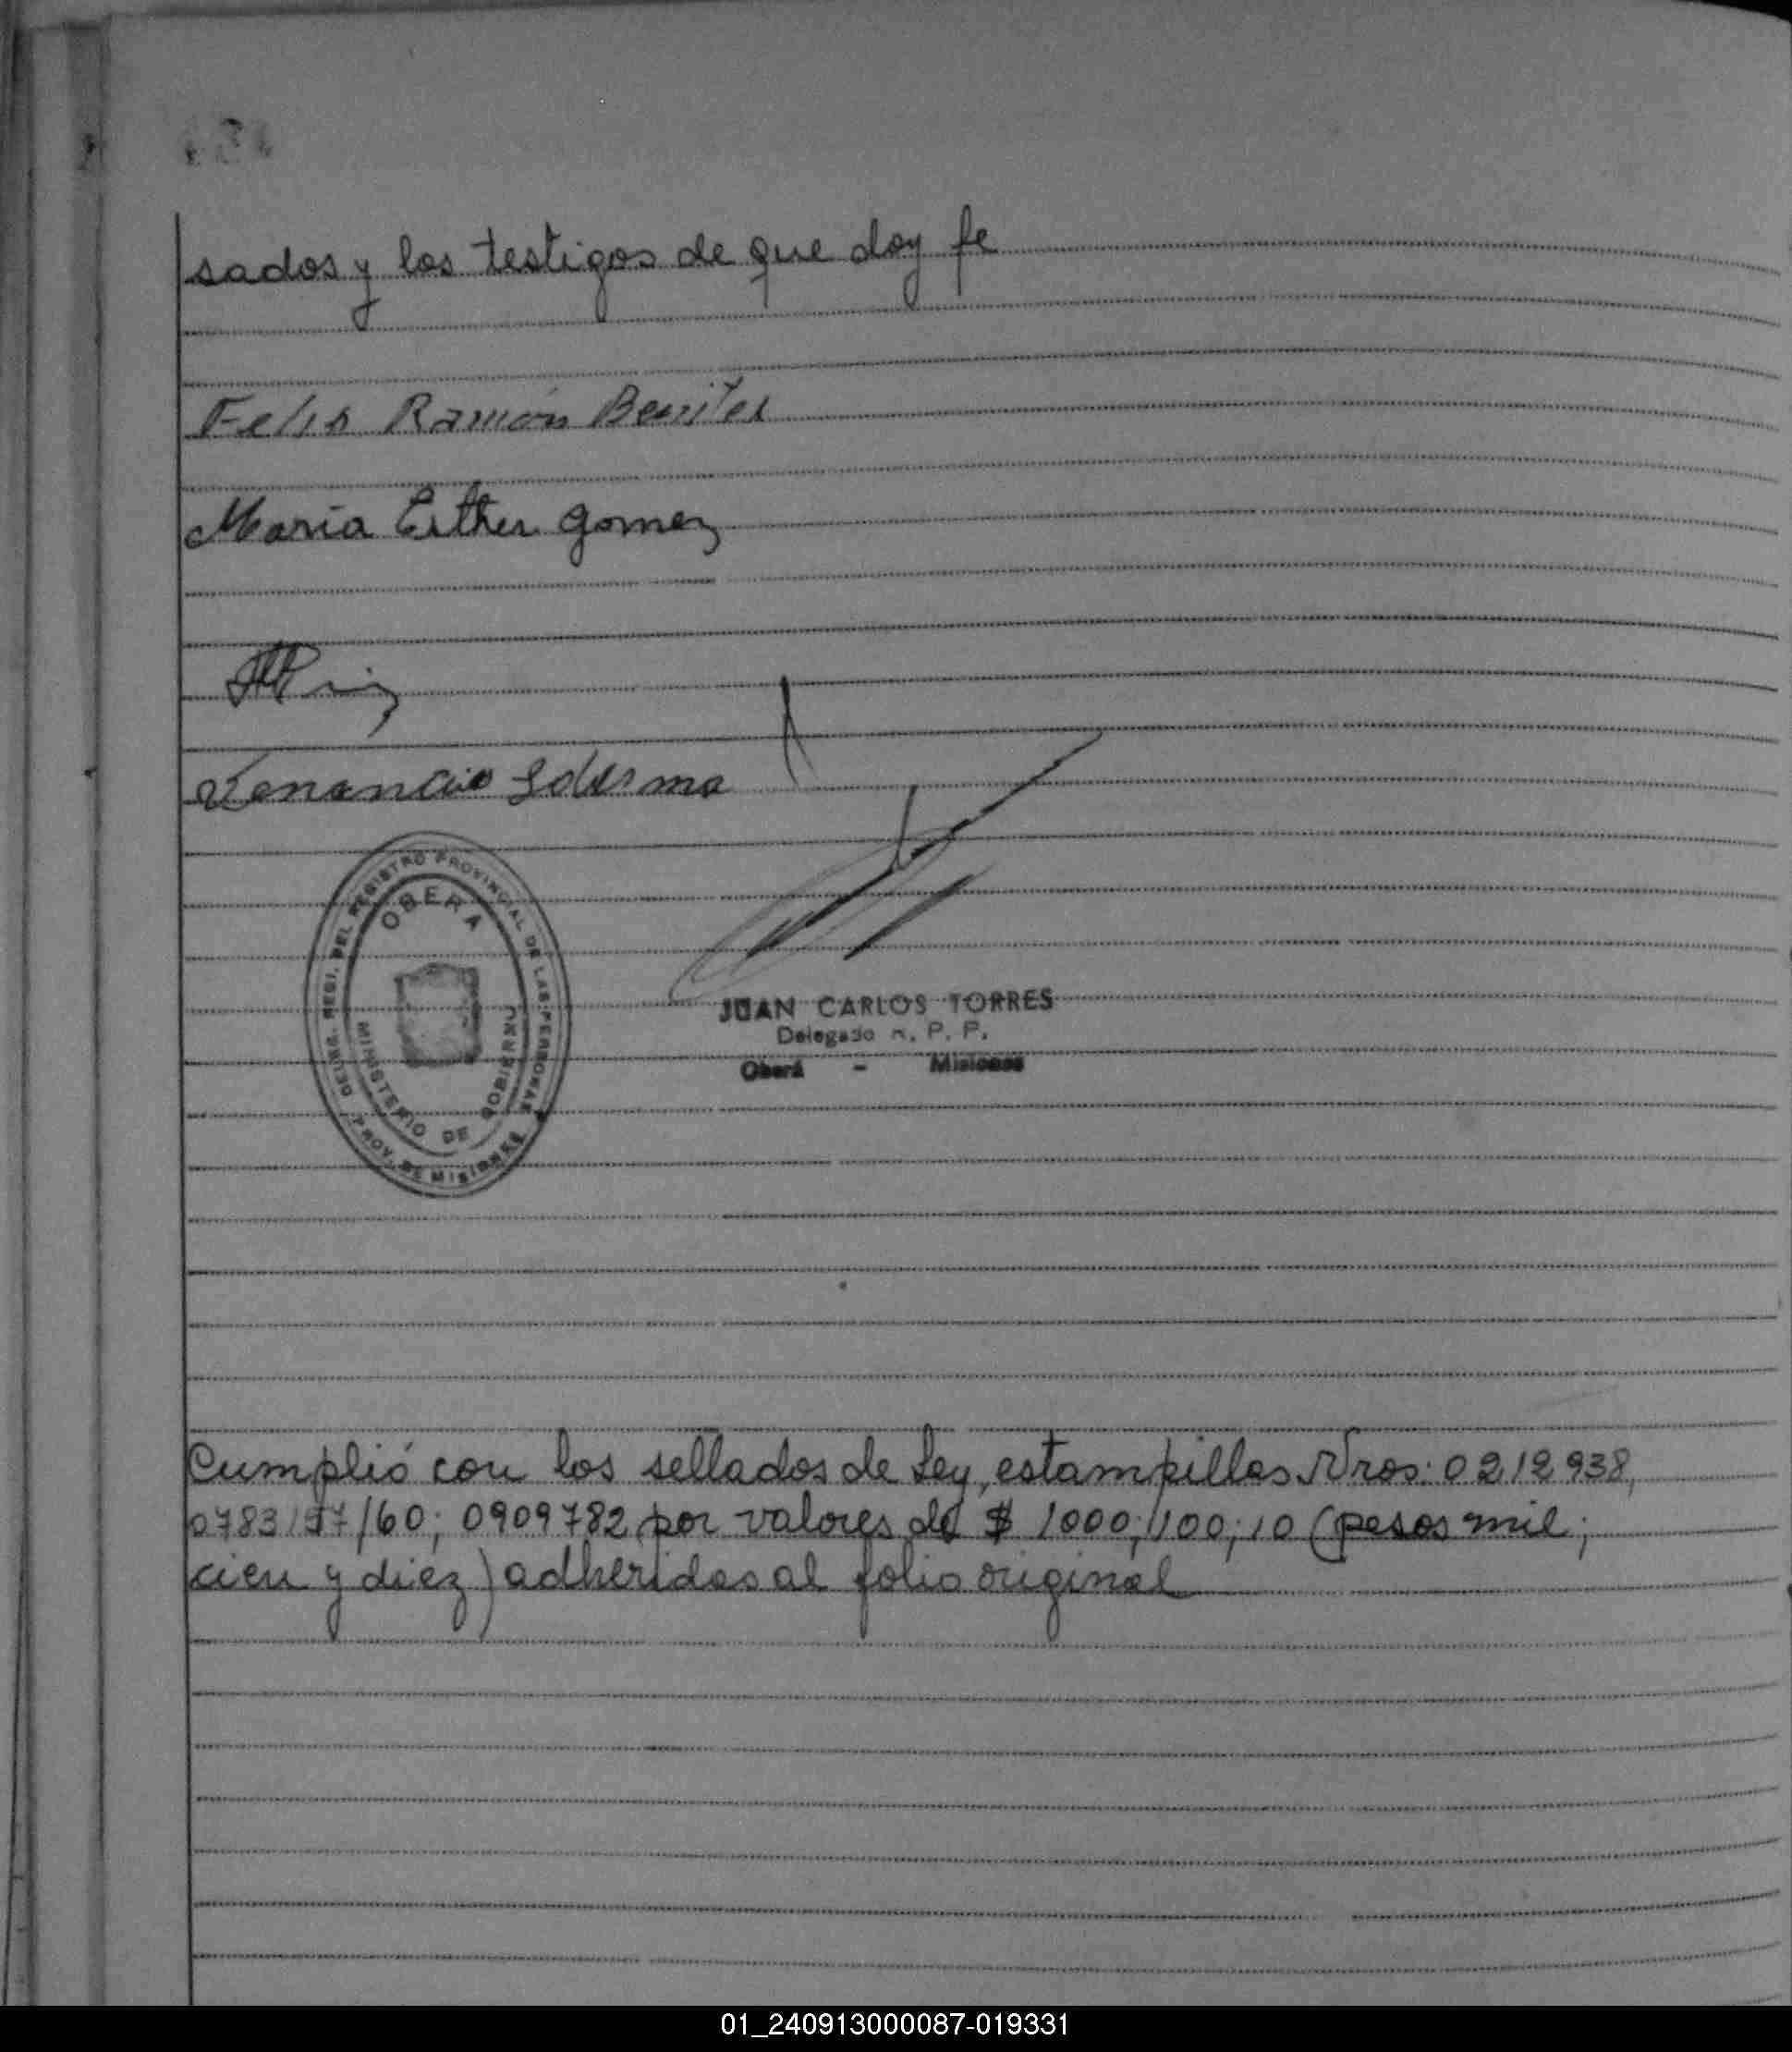 sados y los testigos de que doy fe
Felis Ramón Benites
Maria Esther gomez
Venancio Ledesma
DELEG. REGI. DEL REGISTRO PROVINCIAL DE LAS PERSONAS
OBERA
MINISTERIO DE GOBIERNO
PROV. DE MISIONES
JUAN CARLOS TORRES
Delegado R. P. P.
Oberá - Misiones
Cumplió con los sellados de Ley, estampillas Nros: 0212938,
/60; 0909782 por valores de $ 1000; 100; 10 (pesos mil;
cien y diez) adheridas al folio original
01_240913000087-019331